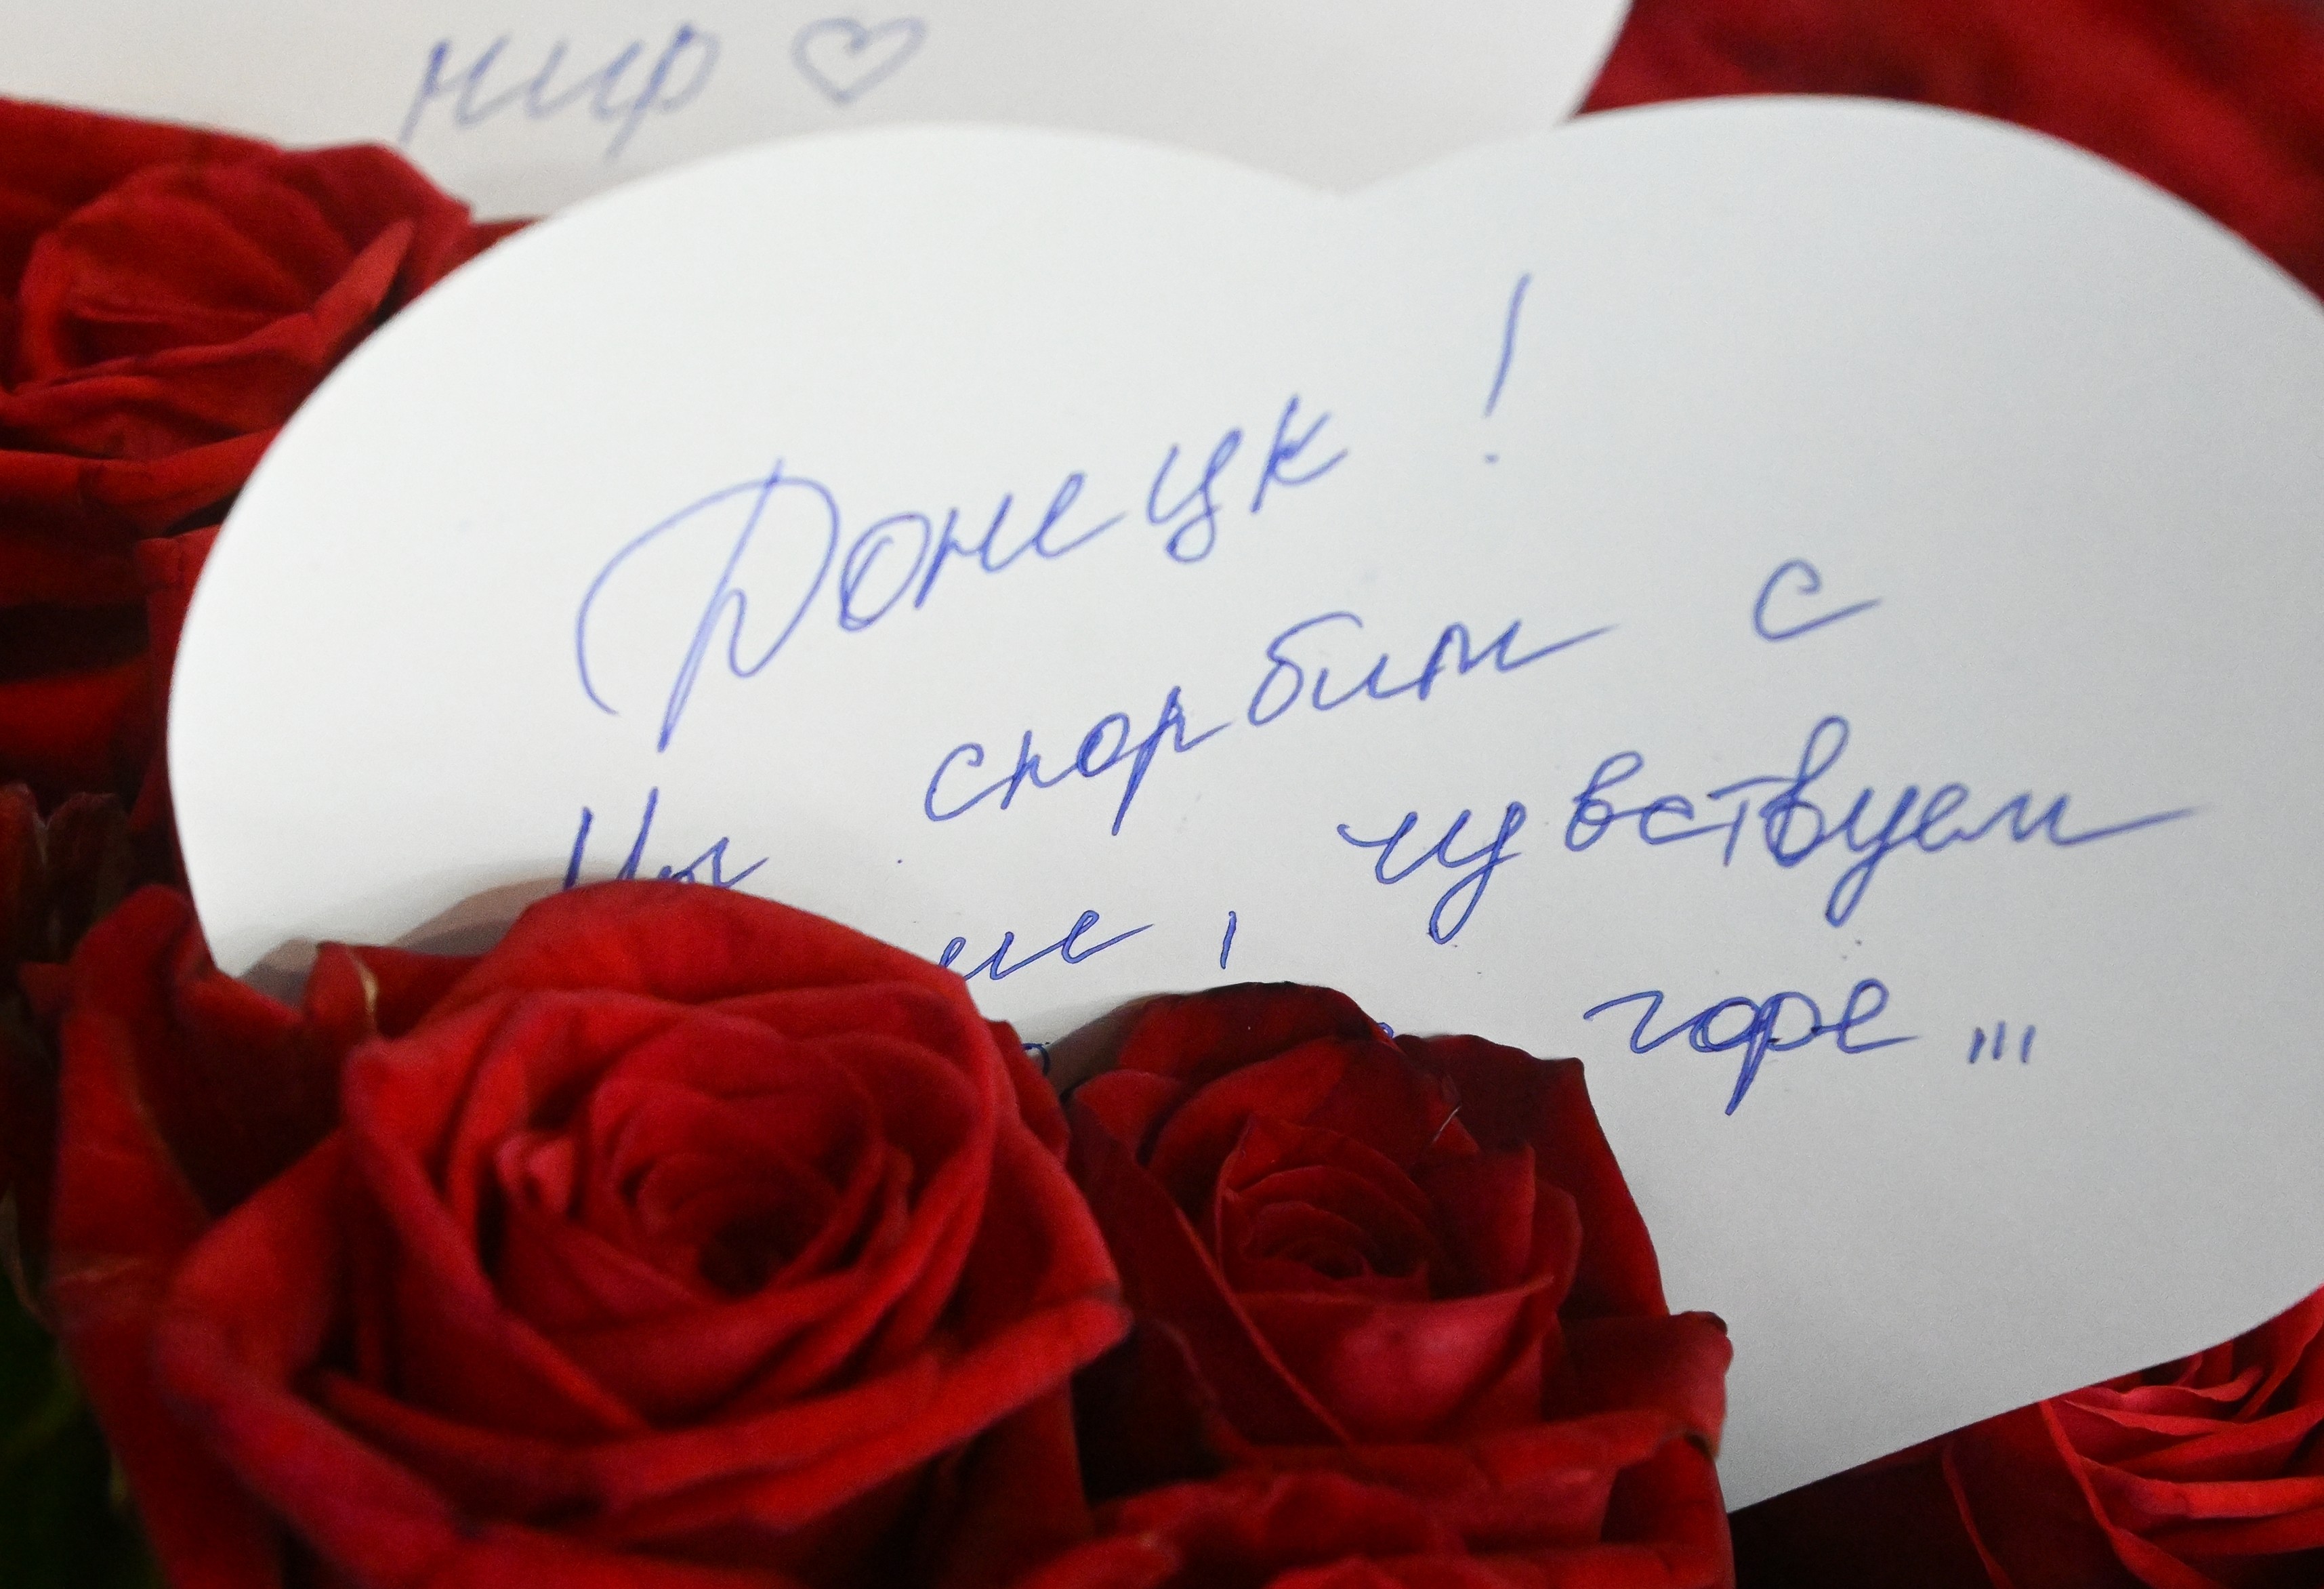 мир ♡
Донецк !
Мы скорбим с
чувствуем
горе ...